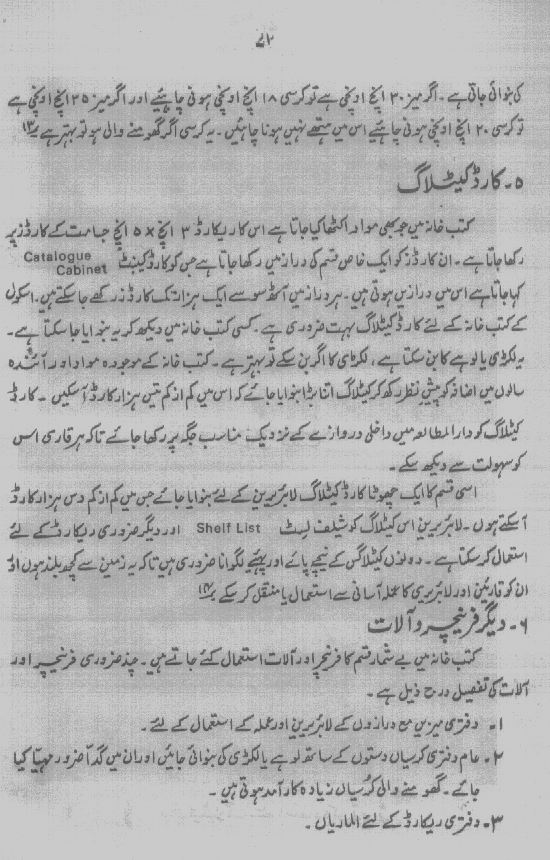 ۷۲
کی بنوائی جاتی ہے۔ اگر میز ۳۰ انچ اونچی ہے تو کرسی ۱۸ انچ اونچی ہونی چاہئیے اور اگر میز ۳۵ انچ اونچی ہے
تو کرسی ۲۰ انچ اونچی ہونی چاہئیے اس میں ہتھے نہیں ہونا چاہئیں۔ یہ کرسی اگر گھومنے والی ہو تو بہتر ہے ۱۳
۵۔ کارڈ کیٹلاگ
کتب خانہ میں جو بھی مواد اکٹھا کیا جاتا ہے اس کا ریکارڈ ۳ انچ × ۵ انچ جسامت کے کارڈز پر
رکھا جاتا ہے۔ ان کارڈز کو ایک خاص قسم کی دراز میں رکھا جاتا ہے جس کو کارڈ کیبنٹ Catalogue Cabinet
کہا جاتا ہے اس میں درازیں ہوتی ہیں۔ ہر دراز میں آٹھ سو سے ایک ہزار تک کارڈز رکھے جا سکتے ہیں۔ اسکول
کے کتب خانہ کے لئے کارڈ کیٹلاگ بہت ضروری ہے۔ کسی کتب خانہ میں دیکھ کر یہ بنوایا جا سکتا ہے۔
یہ لکڑی یا لوہے کا بن سکتا ہے، لکڑی کا اگر بن سکے تو بہتر ہے۔ کتب خانہ کے موجودہ مواد اور آئندہ
سالوں میں اضافہ کو پیشِ نظر رکھ کر کیٹلاگ اتنا بڑا بنوایا جائے کہ اس میں کم از کم تیس ہزار کارڈ آ سکیں۔ کارڈ
کیٹلاگ کو دارالمطالعہ میں داخلی دروازے کے نزدیک مناسب جگہ پر رکھا جائے تاکہ ہر قاری اس
کو سہولت سے دیکھ سکے۔
اسی قسم کا ایک چھوٹا کارڈ کیٹلاگ لائبریرین کے لئے بنوایا جائے جس میں کم از کم دس ہزار کارڈ
آ سکتے ہوں۔ لائبریرین اس کیٹلاگ کو شیلف لسٹ Shelf List اور دیگر ضروری ریکارڈ کے لئے
استعمال کر سکتا ہے۔ دونوں کیٹلاگس کے نیچے پائے اور پہئیے لگوانا ضروری ہیں تاکہ یہ زمین سے کچھ بلند ہوں اور
ان کو قارئین اور لائبریری کا عملہ آسانی سے استعمال یا منتقل کر سکے ۱۴
۶۔ دیگر فرنیچر و آلات
کتب خانہ میں بے شمار قسم کا فرنیچر اور آلات استعمال کئے جاتے ہیں۔ چند ضروری فرنیچر اور
آلات کی تفصیل درج ذیل ہے۔
۱۔ دفتری میزیں مع درازوں کے لائبریرین اور عملہ کے استعمال کے لئے۔
۲۔ عام دفتری کرسیاں دستوں کے ساتھ لوہے یا لکڑی کی بنوائی جائیں اور ان میں گدّا ضرور مہیّا کیا
جائے۔ گھومنے والی کُرسیاں زیادہ کارآمد ہوتی ہیں۔
۳۔ دفتری ریکارڈ کے لئے الماریاں۔